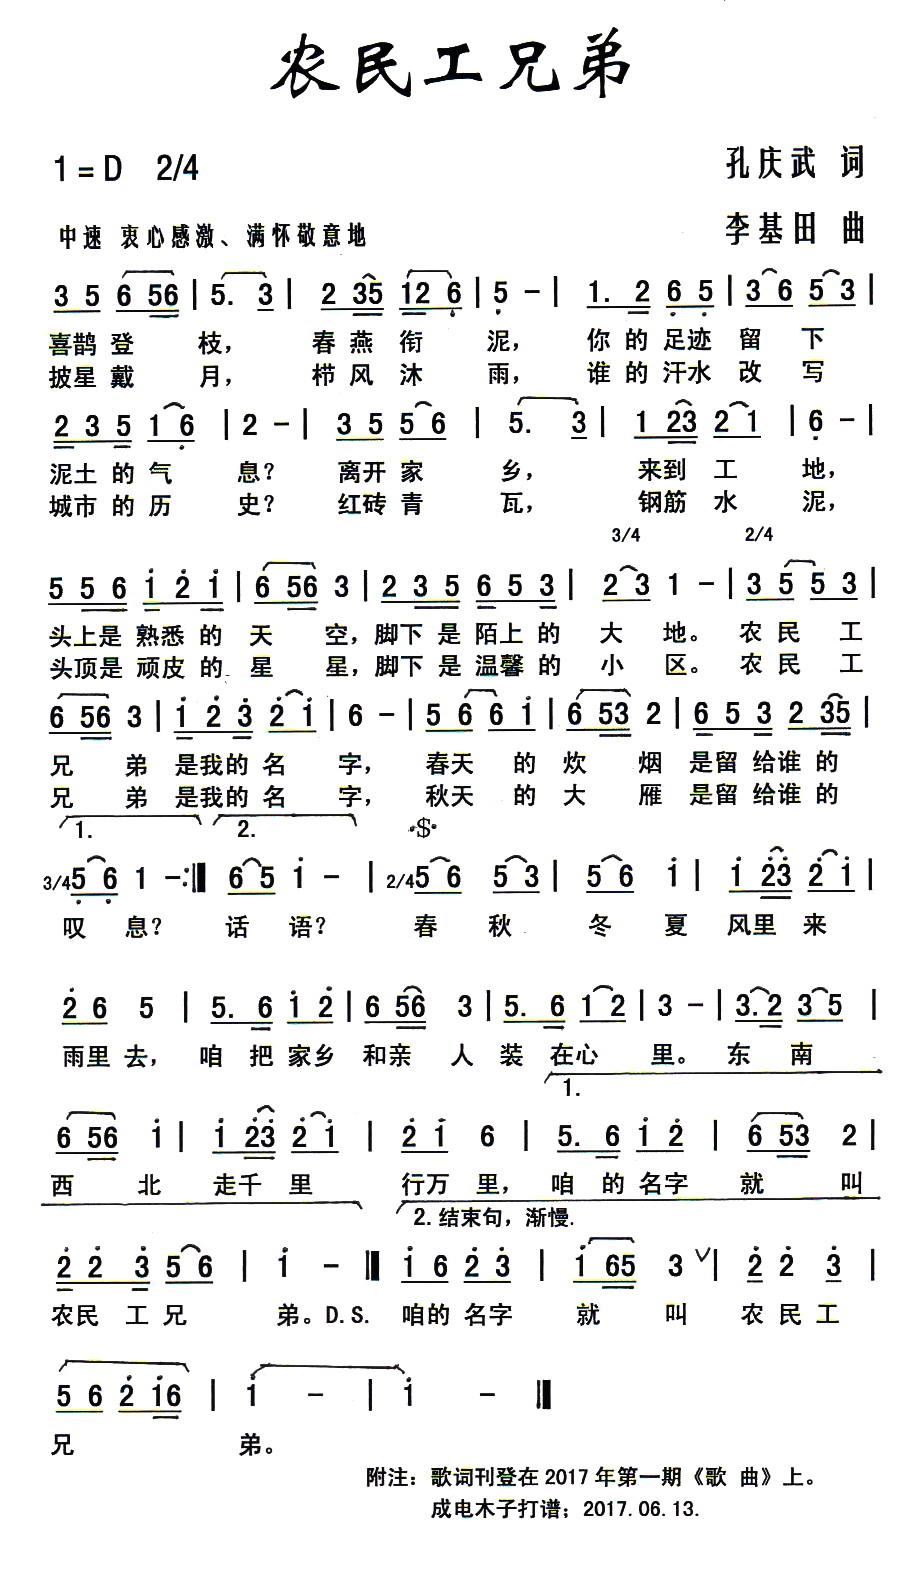 农民工兄弟
1=D 2/4 孔庆武 词
中速 衷心感激、满怀敬意地 李基田 曲
3 5 6 56 | 5. 3 | 2 35 12 6 | 5 - | 1. 2 6 5 | 3 6 5 3 |
喜鹊 登 枝， 春 燕 衔 泥， 你 的 足迹 留 下
披星 戴 月， 栉 风 沐 雨， 谁 的 汗水 改 写
2 3 5 1 6 | 2 - | 3 5 5 6 | 5. 3 | 1 23 2 1 | 6 - |
泥土 的 气 息？ 离开 家 乡， 来到 工 地，
城市 的 历 史？ 红砖 青 瓦， 钢筋 水 泥，
3/4 2/4
5 5 6 i 2 i | 6 56 3 | 2 3 5 6 5 3 | 2 3 1 - | 3 5 5 3 |
头上是 熟悉 的 天 空，脚下 是 陌上 的 大 地。 农 民 工
头顶是 顽皮 的 星 星，脚下 是 温馨 的 小 区。 农 民 工
6 56 3 | i 2 3 2 i | 6 - | 5 6 6 i | 6 53 2 | 6 5 3 2 35 |
兄 弟 是我的 名 字， 春天 的 炊 烟 是留 给谁 的
兄 弟 是我的 名 字， 秋天 的 大 雁 是留 给谁 的
1. 2. 𝄋
3/4 5 6 1 - :| 6 5 i - | 2/4 5 6 5 3 | 5 6 i | i 23 2 i |
叹 息？ 话 语？ 春 秋 冬 夏 风里 来
2 6 5 | 5. 6 i 2 | 6 56 3 | 5. 6 1 2 | 3 - | 3. 2 3 5 |
雨里 去， 咱 把 家乡 和亲 人 装 在心 里。 东 南
1.
6 56 i | i 23 2 i | 2 i 6 | 5. 6 i 2 | 6 53 2 |
西 北 走千 里 行万 里， 咱 的 名字 就 叫
2. 结束句，渐慢.
2 2 3 5 6 | i - ‖ i 6 2 3 | i 65 3 ∨ | 2 2 3 |
农民 工 兄 弟。D.S. 咱的 名字 就 叫 农 民 工
5 6 2 i6 | i - | i - ‖
兄 弟。
附注：歌词刊登在 2017 年第一期《歌 曲》上。
成电木子打谱；2017.06.13.